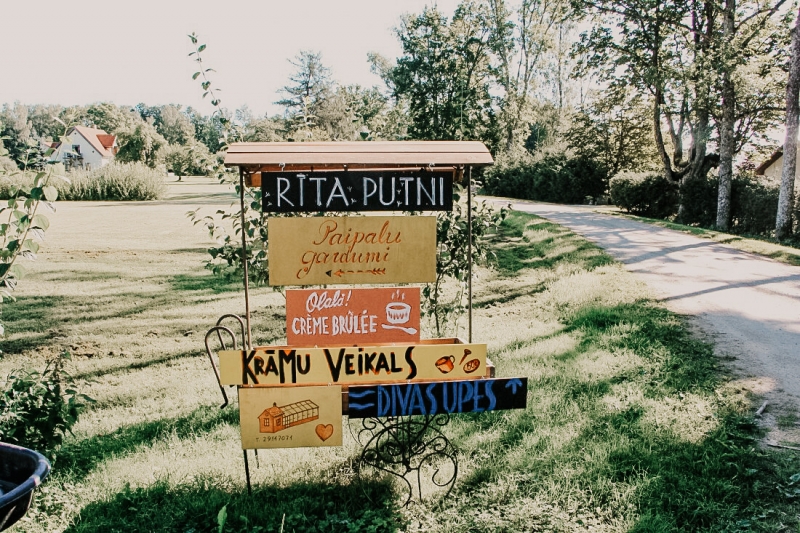 RĪTA PUTNI
Paipalu
gardumi
Olalā!
CRÈME BRÛLÉE
KRĀMU VEIKALS
=DIVAS UPES